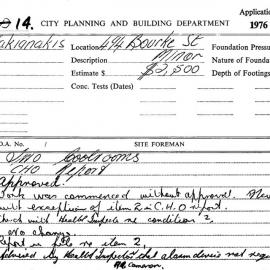 14. CITY PLANNING AND BUILDING DEPARTMENT
Application
1976
akianakis
Location 494 Bourke St
Foundation Pressu
Description Minor
Nature of Founda
Estimate $ $2,500
Depth of Footings
Conc. Tests (Dates)
O.A. No.
SITE FOREMAN
Coolrooms
CHO Report
Approved.
Work was commenced without approval.
with exception of item 2 in C.H.O report.
Check with Health Inspector re condition 2,
no change.
report is file re item 2,
by Health Inspector that alarm device not req
Cameron.